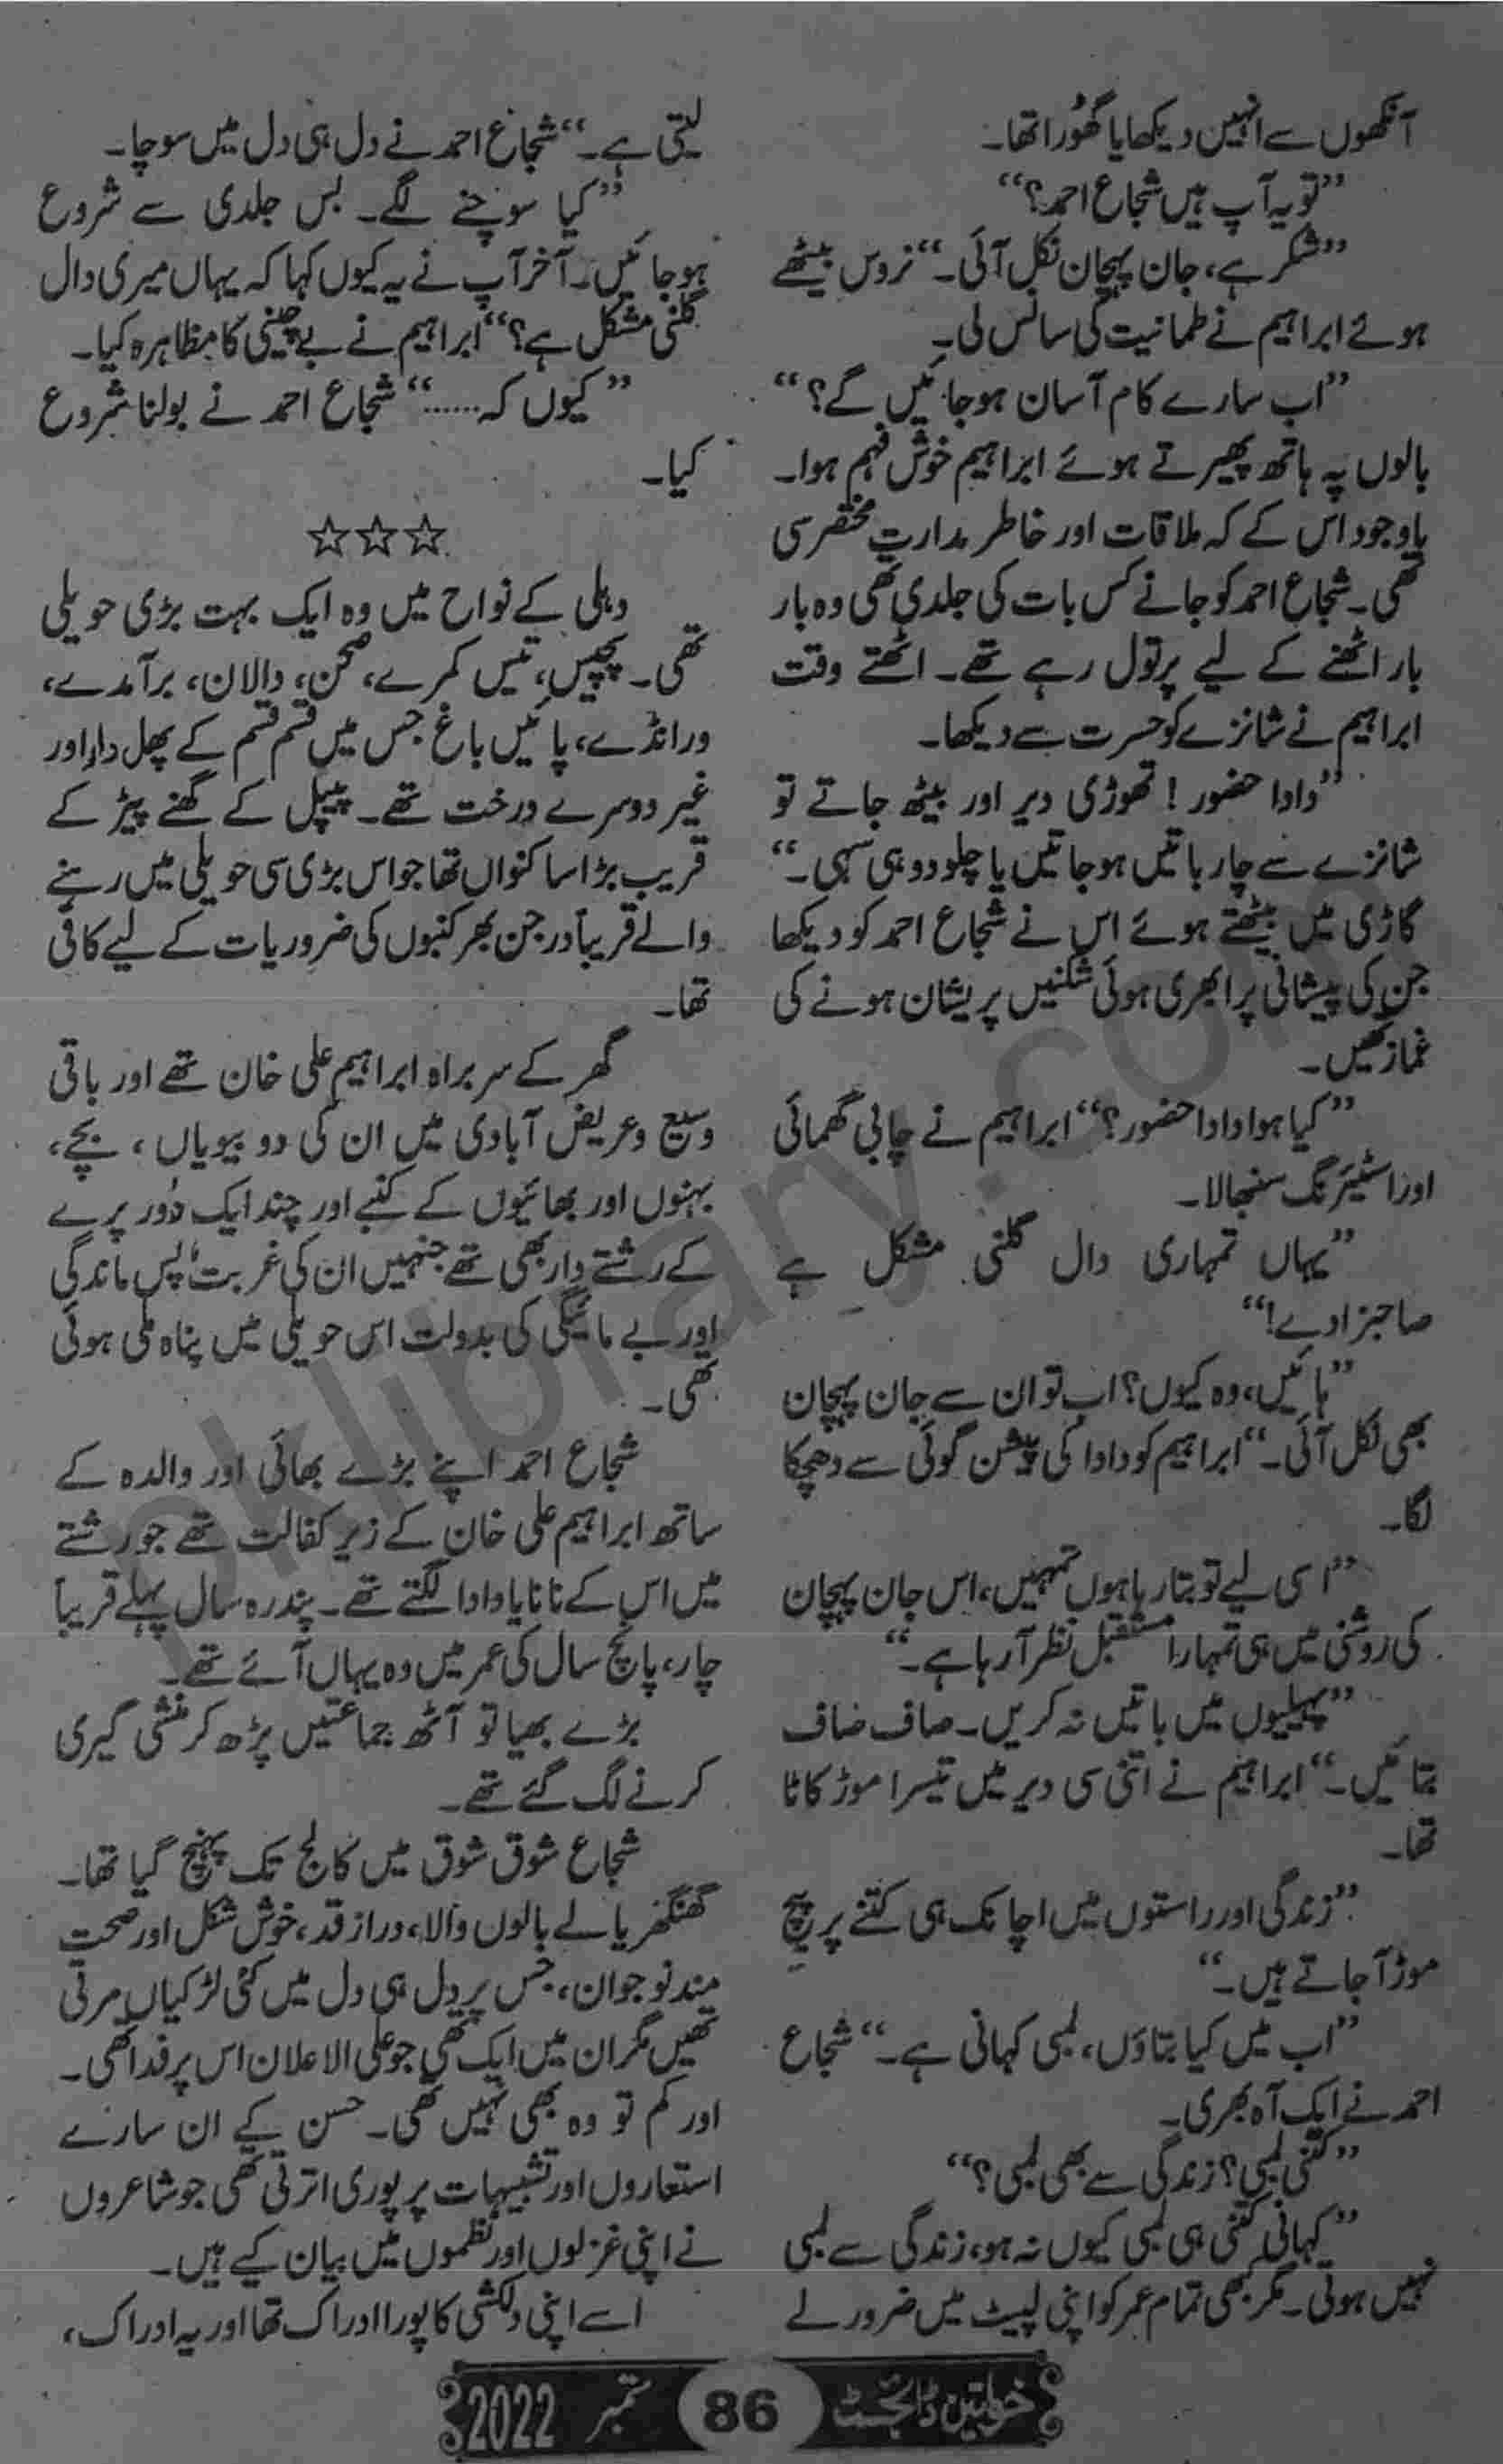 آنکھوں سے انہیں دیکھا یا گھورا تھا۔
”تو یہ آپ ہیں شجاع احمد؟“
”شکر ہے، جان پہچان نکل آئی۔“ نروس بیٹھے
ہوئے ابراہیم نے طمانیت کی سانس لی۔
”اب سارے کام آسان ہوجائیں گے؟“
بالوں پہ ہاتھ پھیرتے ہوئے ابراہیم خوش فہم ہوا۔
باوجود اس کے کہ ملاقات اور خاطر مدارت مختصر سی
تھی۔ شجاع احمد کو جانے کس بات کی جلدی تھی وہ بار
بار اٹھنے کے لیے پر تول رہے تھے۔ اٹھتے وقت
ابراہیم نے شانزے کو حسرت سے دیکھا۔
”دادا حضور! تھوڑی دیر اور بیٹھ جاتے تو
شانزے سے چار باتیں ہوجاتیں یا چلو دو ہی سہی۔“
گاڑی میں بیٹھتے ہوئے اس نے شجاع احمد کو دیکھا
جن کی پیشانی پر ابھری ہوئی شکنیں پریشان ہونے کی
غماز تھیں۔
”کیا ہوا دادا حضور؟“ ابراہیم نے چابی گھمائی
اور اسٹیئرنگ سنبھالا۔
”یہاں تمہاری دال گلنی مشکل ہے
صاحبزادے!“
”ہائیں، وہ کیوں؟ اب تو ان سے جان پہچان
بھی نکل آئی۔“ ابراہیم کو دادا کی پیشن گوئی سے دھچکا
لگا۔
”اسی لیے تو بتا رہا ہوں تمہیں، اس جان پہچان
کی روشنی میں ہی تمہارا مستقبل نظر آرہا ہے۔“
”پہیلیوں میں باتیں نہ کریں۔ صاف صاف
بتائیں۔“ ابراہیم نے اتنی سی دیر میں تیسرا موڑ کاٹا
تھا۔
”زندگی اور راستوں میں اچانک ہی کتنے پر پیچ
موڑ آجاتے ہیں۔“
”اب میں کیا بتاؤں، لمبی کہانی ہے۔“ شجاع
احمد نے ایک آہ بھری۔
”کتنی لمبی؟ زندگی سے بھی لمبی؟“
”کہانی کتنی ہی لمبی کیوں نہ ہو، زندگی سے لمبی
نہیں ہوتی۔ مگر کبھی تمام عمر کو اپنی لپیٹ میں ضرور لے
لیتی ہے۔“ شجاع احمد نے دل ہی دل میں سوچا۔
”کیا سوچنے لگے۔ بس جلدی سے شروع
ہوجائیں۔ آخر آپ نے یہ کیوں کہا کہ یہاں میری دال
گلنی مشکل ہے؟“ ابراہیم نے بے چینی کا مظاہرہ کیا۔
”کیوں کہ......“ شجاع احمد نے بولنا شروع
کیا۔
☆☆☆
دہلی کے نواح میں وہ ایک بہت بڑی حویلی
تھی۔ پچیس، تیس کمرے، صحن، دالان، برآمدے،
ورانڈے، پائیں باغ جس میں قسم قسم کے پھل دار اور
غیر دوسرے درخت تھے۔ پیپل کے گھنے پیڑ کے
قریب بڑا سا کنواں تھا جو اس بڑی سی حویلی میں رہنے
والے قریباً درجن بھر کنبوں کی ضروریات کے لیے کافی
تھا۔
گھر کے سربراہ ابراہیم علی خان تھے اور باقی
وسیع و عریض آبادی میں ان کی دو بیویاں، بچے،
بہنوں اور بھائیوں کے کنبے اور چند ایک دُور پرے
کے رشتے دار بھی تھے جنہیں ان کی غربت، پس ماندگی
اور بے مائیگی کی بدولت اس حویلی میں پناہ ملی ہوئی
تھی۔
شجاع احمد اپنے بڑے بھائی اور والدہ کے
ساتھ ابراہیم علی خان کے زیر کفالت تھے جو رشتے
میں اس کے نانا یا دادا لگتے تھے۔ پندرہ سال پہلے قریباً
چار، پانچ سال کی عمر میں وہ یہاں آئے تھے۔
بڑے بھیا تو آٹھ جماعتیں پڑھ کر منشی گیری
کرنے لگ گئے تھے۔
شجاع شوق شوق میں کالج تک پہنچ گیا تھا۔
گھنگھریالے بالوں والا، دراز قد، خوش شکل اور صحت
مند نوجوان، جس پر دل ہی دل میں کئی لڑکیاں مرتی
تھیں مگر ان میں ایک تھی جو علی الاعلان اس پر فدا تھی۔
اور کم تو وہ بھی نہیں تھی۔ حسن کے ان سارے
استعاروں اور تشبیہات پر پوری اترتی تھی جو شاعروں
نے اپنی غزلوں اور نظموں میں بیان کیے ہیں۔
اسے اپنی دلکشی کا پورا ادراک تھا اور یہ ادراک،
خواتین ڈائجسٹ 86 ستمبر 2022
pklibrary.com